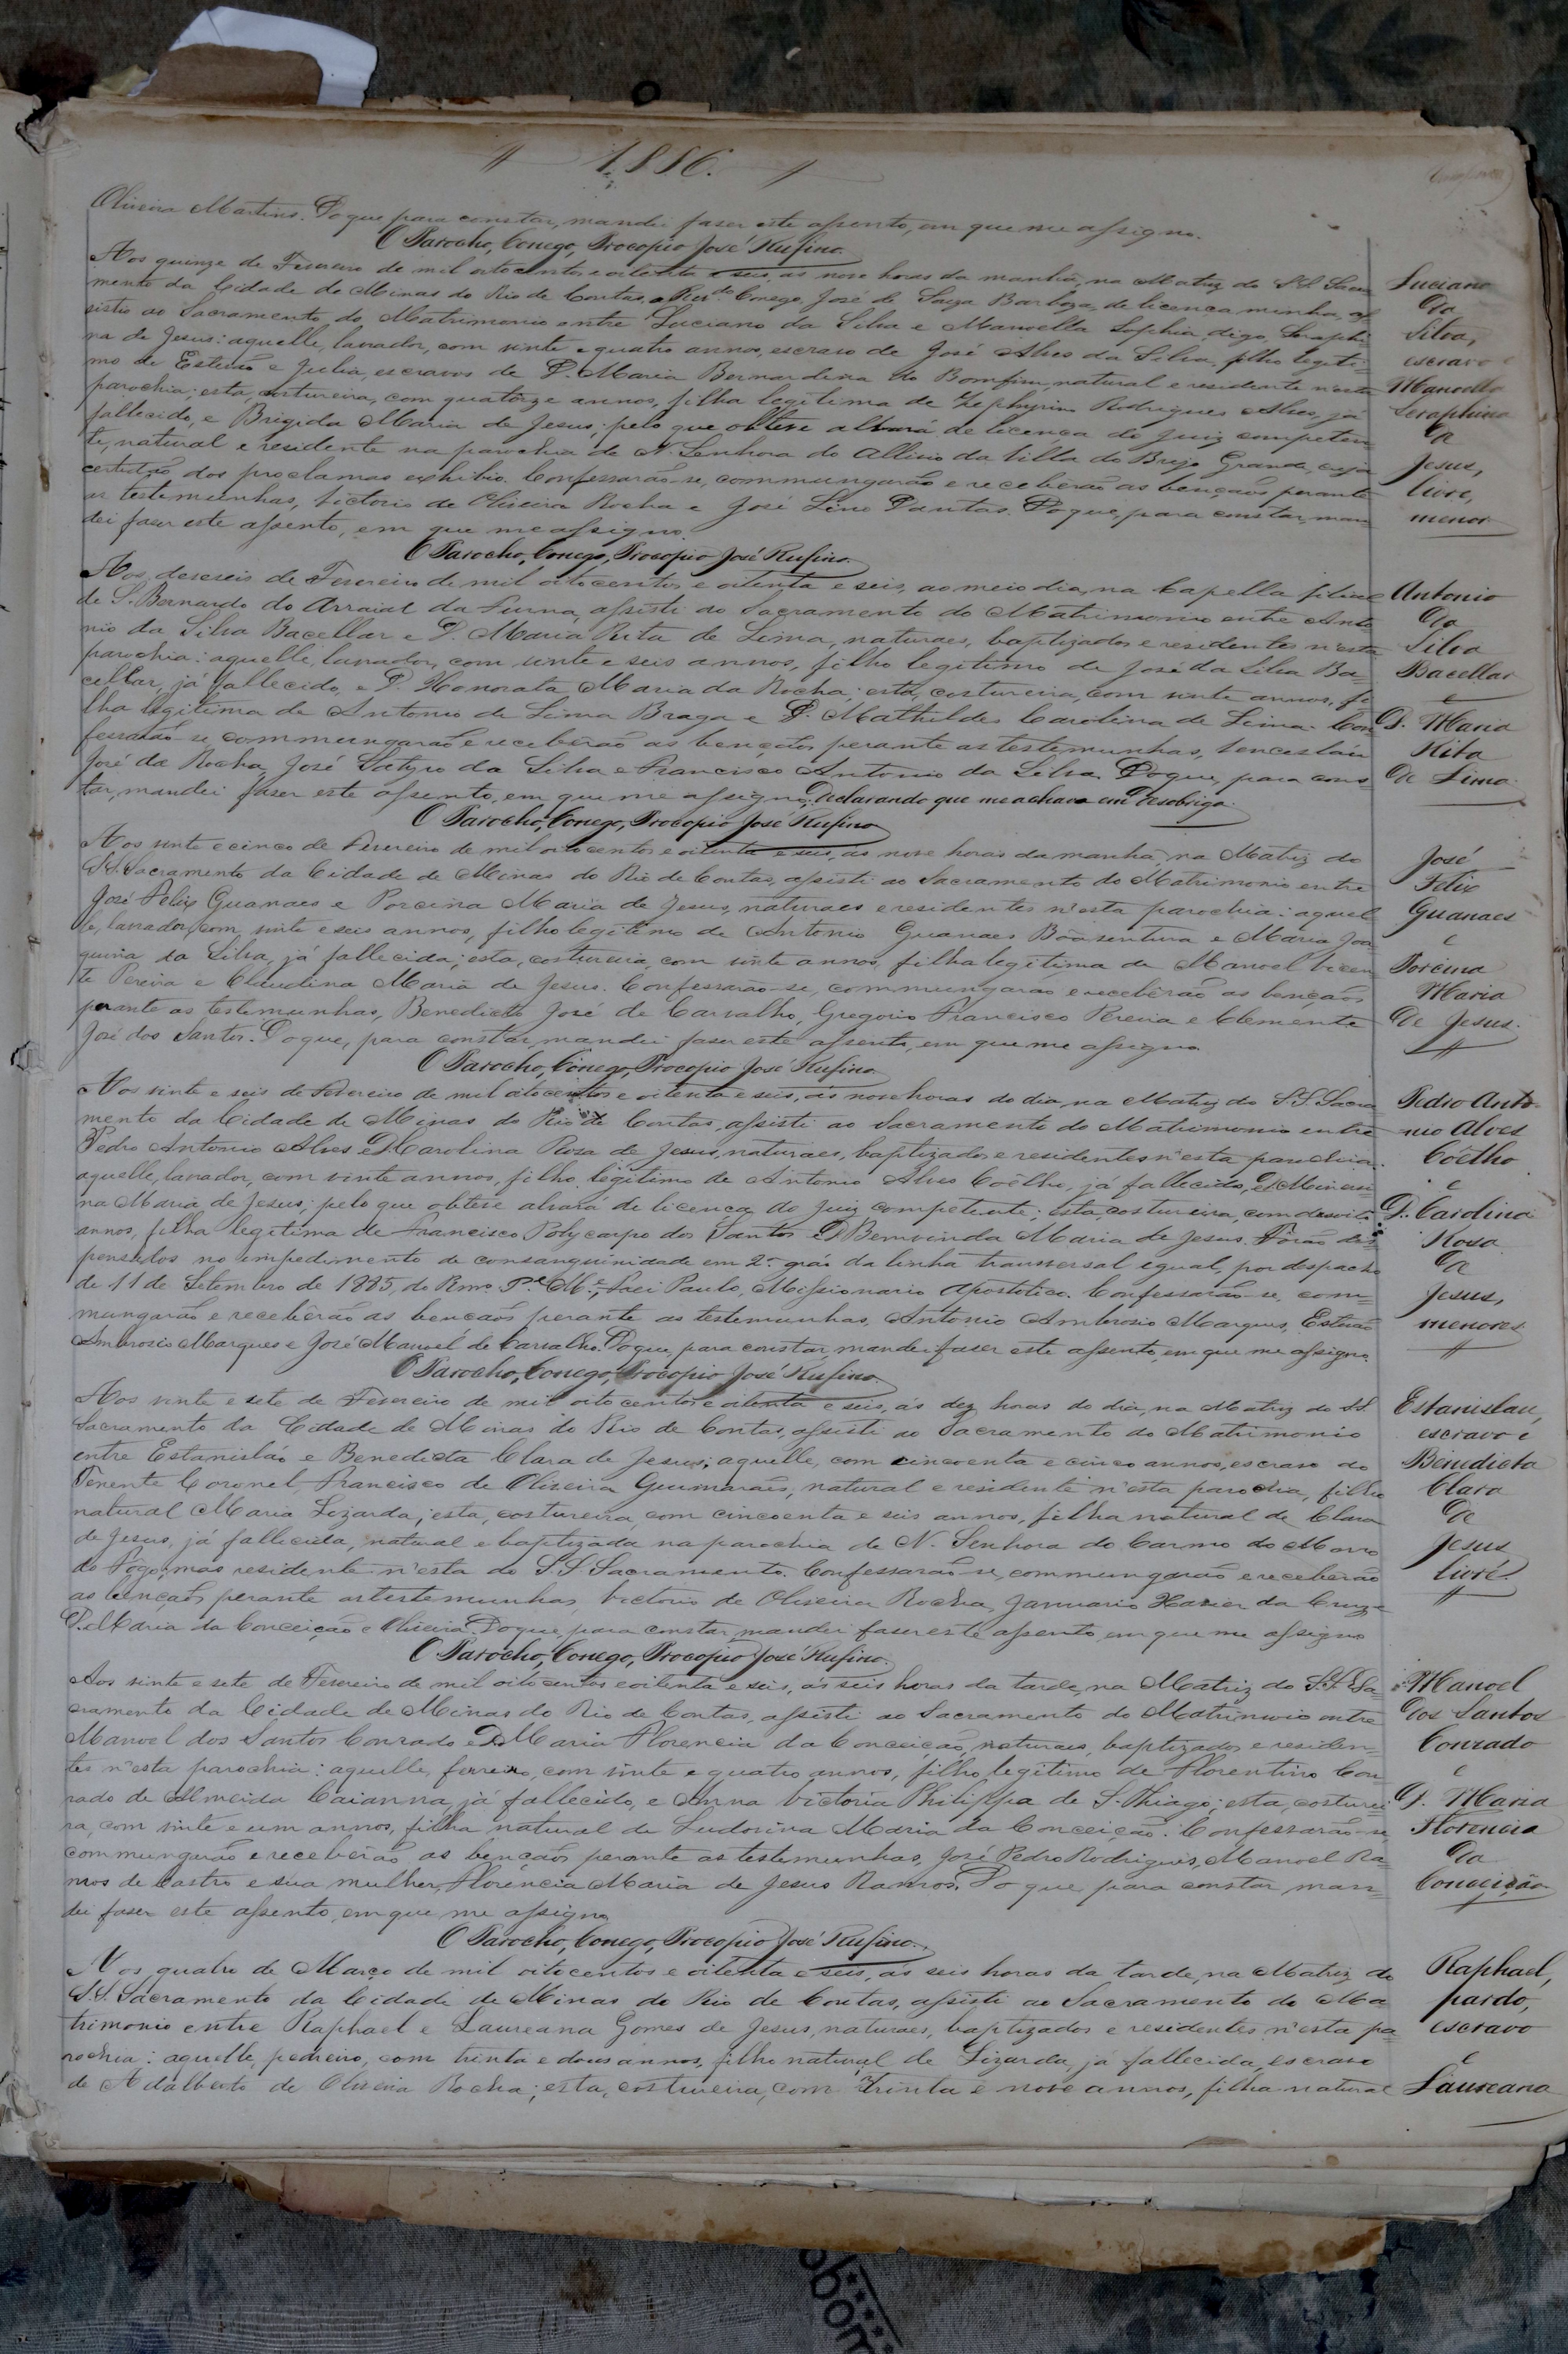 1886.
Oliveira Martins. Do que para constar, mandei faser este assento, em que me assigno.
O Parocho, Conego, Procopio José Rufino.
Aos quinze de Fevereiro de mil oitocentos e oitenta e seis, as nove horas da manhã, na Matriz do SS. Sacra
mento da Cidade de Minas do Rio de Contas, o Revdo. Conego José de Souza Barboza, de licença minha, as
sistio ao Sacramento do Matrimonio entre Luciano da Silva e Manoella Sophia, digo, Seraphi
na de Jesus: aquelle, lavrador, com vinte e quatro annos, escravo de José Alves da Silva, filho legiti
mo de Estevão e Julia, escravos de D. Maria Bernardina do Bomfim, natural e residente n'esta
parochia; esta, costureira, com quatorze annos, filha legitima de Zephyrino Rodrigues Alves, já
fallecido, e Brigida Maria de Jesus; pelo que obteve alvará de licença do Juiz competen
te, natural e residente na parochia de N. Senhora do Allivio da Villa do Brejo Grande, cuja
certidão dos proclamas exhibio. Confessarão-se, commungarão e receberão as bençaõs perante
as testemunhas, Victorio de Oliveira Rocha e José Lino Dantas. Do que, para constar, man
dei faser este assento, em que me assigno.
O Parocho, Conego, Procopio José Rufino.
Luciano
da
Silva,
escravo e
Manoella
Seraphina
de
Jesus,
livre,
menor
Aos deseseis de Fevereiro de mil oitocentos e oitenta e seis, ao meio dia, na Capella filial
de S. Bernardo do Arraial da Furna, assisti ao Sacramento do Matrimonio entre Anto-
nio da Silva Bacellar e D. Maria Rita de Lima, naturaes, baptizados e residentes n'esta
parochia: aquelle, lavrador, com vinte e seis annos, filho legitimo de José da Silva Ba-
cellar, já fallecido, e D. Honorata Maria da Rocha; esta, costureira, com vinte annos, fi
lha legitima de Antonio de Lima Braga e D. Mathildes Carolina de Lima. Con
fessarão-se, commungarão e receberão as bençaõs perante as testemunhas, Venceslau
José da Rocha, José Satyro da Silva e Francisco Antonio da Silva. Do que, para cons
tar, mandei faser este assento, em que me assigno, Declarando que me achava em Desobriga.
O Parocho, Conego, Procopio José Rufino
Antonio
da
Silva
Bacellar
e
D. Maria
Rita
de Lima.
Aos vinte e cinco de Fevereiro de mil oitocentos e oitenta e seis, ás nove horas da manhã, na Matriz do
SS. Sacramento da Cidade de Minas do Rio de Contas, assisti ao Sacramento do Matrimonio entre
José Felix Guanaes e Porcina Maria de Jesus, naturaes e residentes n'esta parochia: aquel
le, lavrador, com vinte e seis annos, filho legitimo de Antonio Guanaes Bôaventura e Maria Joa
quina da Silva, já fallecida; esta, costureira, com vinte annos, filha legitima de Manoel Vicen
te Pereira e Claudina Maria de Jesus. Confessarão-se, commungarão e receberão as bençaõs
perante as testemunhas, Benedicto José de Carvalho, Gregorio Francisco Pereira e Clemente
José dos Santos. Do que, para constar, mandei faser este assento, em que me assigno
O Parocho, Conego, Procopio José Rufino
José
Felix
Guanaes
e
Porcina
Maria
de Jesus.
Aos vinte e seis de Fevereiro de mil oitocentos e oitenta e seis, ás nove horas do dia, na Matriz do S.S. Sacra
mento da Cidade de Minas do Rio de Contas, assisti ao Sacramento do Matrimonio entre
Pedro Antonio Alves e D. Carolina Rosa de Jesus, naturaes, baptizados e residentes n'esta parochia:
aquelle, lavrador, com vinte annos, filho legitimo de Antonio Alves Coêlho, já fallecido, e D. Minervi
na Maria de Jesus; pelo que obteve alvará de licença do Juiz competente; esta, costureira, com desoito
annos, filha legitima de Francisco Polycarpo dos Santos e D. Bemvinda Maria de Jesus. Forão dis
pensados no impedimento de consanguinidade em 2º gráo da linha transversal egual, por despacho
de 11 de Setembro de 1885, do Rmo. Pe. Me. Frei Paulo, Missionario Apostolico. Confessarão-se, com-
mungarão e receberão as bençaõs perante as testemunhas, Antonio Ambrosio Marques, Estevão
Ambrosio Marques e José Manoel de Carvalho. Do que, para constar, mandei faser este assento, em que me assigno.
O Parocho, Conego, Procopio José Rufino
Pedro Anto-
nio Alves
Coêlho
e
D. Carolina
Rosa
de
Jesus,
menores
Aos vinte e sete de Fevereiro de mil oitocentos e oitenta e seis, ás dez horas do dia, na Matriz do SS.
Sacramento da Cidade de Minas do Rio de Contas, assisti ao Sacramento do Matrimonio
entre Estanislão e Benedicta Clara de Jesus; aquelle, com cincoenta e cinco annos, escravo do
Tenente Coronel Francisco de Oliveira Guimarães, natural e residente n'esta parochia, filho
natural Maria Lizarda; esta, costureira, com cincoenta e seis annos, filha natural de Clara
de Jesus, já fallecida, natural e baptizada na parochia de N. Senhora do Carmo do Morro
do Fogo, mas residente n'esta do S.S. Sacramento. Confessarão-se, commungarão e receberão
as bençaõs perante as testemunhas, Victorio de Oliveira Rocha, Januario Xavier da Cruz e
D. Maria da Conceição e Oliveira. Do que, para constar, mandei faser este assento, em que me assigno
O Parocho, Conego, Procopio José Rufino.
Estanislau,
escravo e
Benedicta
Clara
de
Jesus
livre.
Aos vinte e sete de Fevereiro de mil oitocentos e oitenta e seis, ás seis horas da tarde, na Matriz do S.S. Sa-
cramento da Cidade de Minas do Rio de Contas, assisti ao Sacramento do Matrimonio entre
Manoel dos Santos Conrado e D. Maria Florencia da Conceição, naturaes, baptizados e residen-
tes n'esta parochia: aquelle, ferreiro, com vinte e quatro annos, filho legitimo de Florentino Con-
rado de Almeida Caianna, já fallecido, e Anna Victoria Philippa de S. Thiago; esta, costurei
ra, com vinte e um annos, filha natural de Ludovina Maria da Conceição. Confessarão-se,
commungarão e receberão as bençaõs perante as testemunhas, José Pedro Rodrigues, Manoel Ra-
mos de Castro e sua mulher, Florencia Maria de Jesus Ramos. Do que, para constar, man-
dei faser este assento, em que me assigno
O Parocho, Conego, Procopio José Rufino.
Manoel
dos Santos
Conrado
e
D. Maria
Florencia
da
Conceição
Aos quatro de Março de mil oitocentos e oitenta e seis, ás seis horas da tarde, na Matriz do
S.S. Sacramento da Cidade de Minas do Rio de Contas, assisti ao Sacramento do Ma
trimonio entre Raphael e Laureana Gomes de Jesus, naturaes, baptizados e residentes n'esta pa-
rochia: aquelle, pedreiro, com trinta e dous annos, filho natural de Lizarda, já fallecida, escravo
de Adalberto de Oliveira Rocha; esta, costureira, com trinta e nove annos, filha natural
Raphael,
pardo,
escravo
e
Laureana